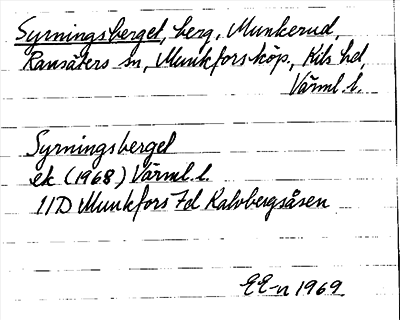 Syrningsberget, berg, Munkerud,
Ransäters sn, Munkfors köp., Kils hd,
Värml. l.
Syrningsberget
ek (1968) Värml. l.
11D Munkfors 7d Kalvbergsåsen
EE-n 1969